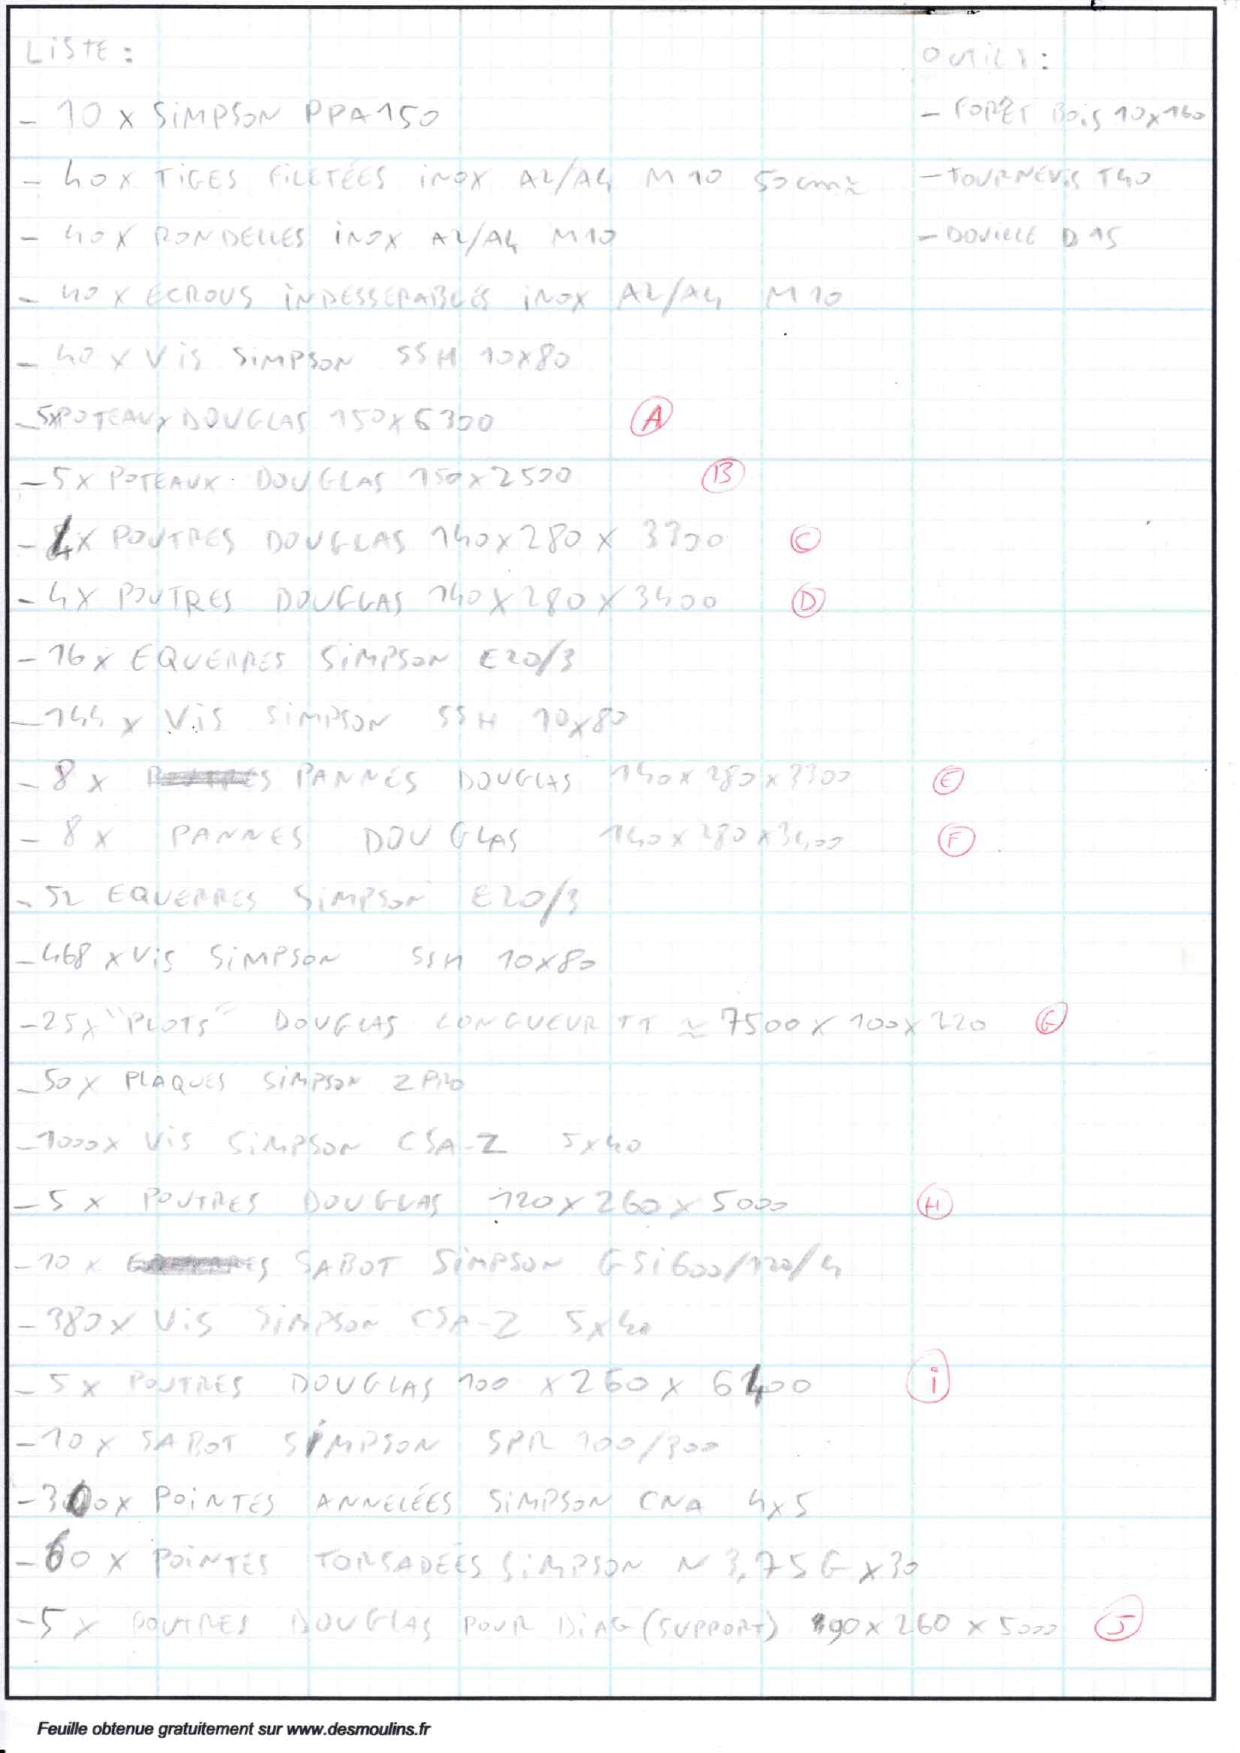 LISTE :
- 10 x SIMPSON PPA150
- 40 x TIGES FILETÉES INOX A2/A4 M10 50cm≈
- 40 x RONDELLES INOX A2/A4 M10
- 40 x ECROUS INDESSERABLES INOX A2/A4 M10
- 40 x VIS SIMPSON SSH 10x80
- 5x POTEAUX DOUGLAS 150x6300 A
- 5 x POTEAUX DOUGLAS 150x2500 B
- 4x POUTRES DOUGLAS 140x280x3300 C
- 4x POUTRES DOUGLAS 140x280x3400 D
- 16x EQUERRES SIMPSON E20/3
- 144 x VIS SIMPSON SSH 10x80
- 8 x PANNES DOUGLAS 140x280x3300 E
- 8 x PANNES DOUGLAS 140x280x3400 F
- 52 EQUERRES SIMPSON E20/3
- 468 x VIS SIMPSON SSH 10x80
- 25x "PLOTS" DOUGLAS LONGUEUR TT ≈ 7500 x 100 x 220 G
- 50 x PLAQUES SIMPSON ZPRO
- 1000x VIS SIMPSON CSA-Z 5x40
- 5 x POUTRES DOUGLAS 120x260x5000 H
- 10 x SABOT SIMPSON GSi600/120/4
- 380x VIS SIMPSON CSA-Z 5x40
- 5 x POUTRES DOUGLAS 100 x 260 x 6400 i
- 10 x SABOT SIMPSON SPR 100/300
- 300x POINTES ANNELÉES SIMPSON CNA 4x5
- 60 x POINTES TORSADÉES SIMPSON N 3,75 G x30
- 5 x POUTRES DOUGLAS POUR DIAG (SUPPORT) 90x260x5000 J
OUTILS :
- FORÊT BOIS 10x160
- TOURNEVIS T40
- DOUILLE D 15
Feuille obtenue gratuitement sur www.desmoulins.fr